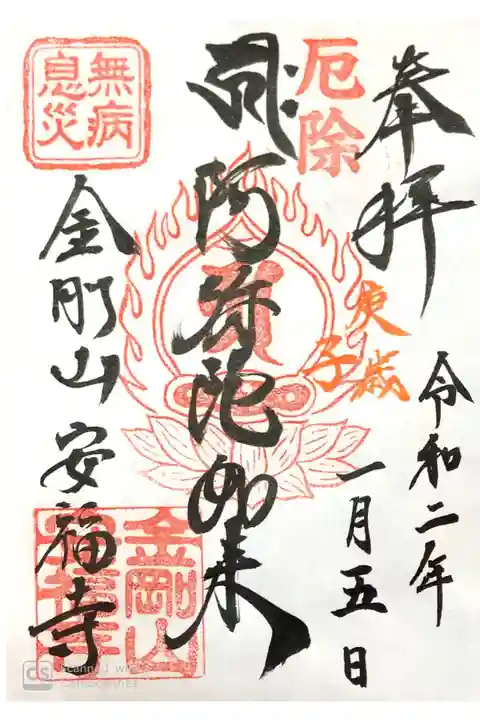 奉拝
厄除
庚子歳
令和二年
一月五日
阿弥陀如来
無病
息災
金剛山 安福寺
金剛山
安福寺
CS Scanned with
CamScanner